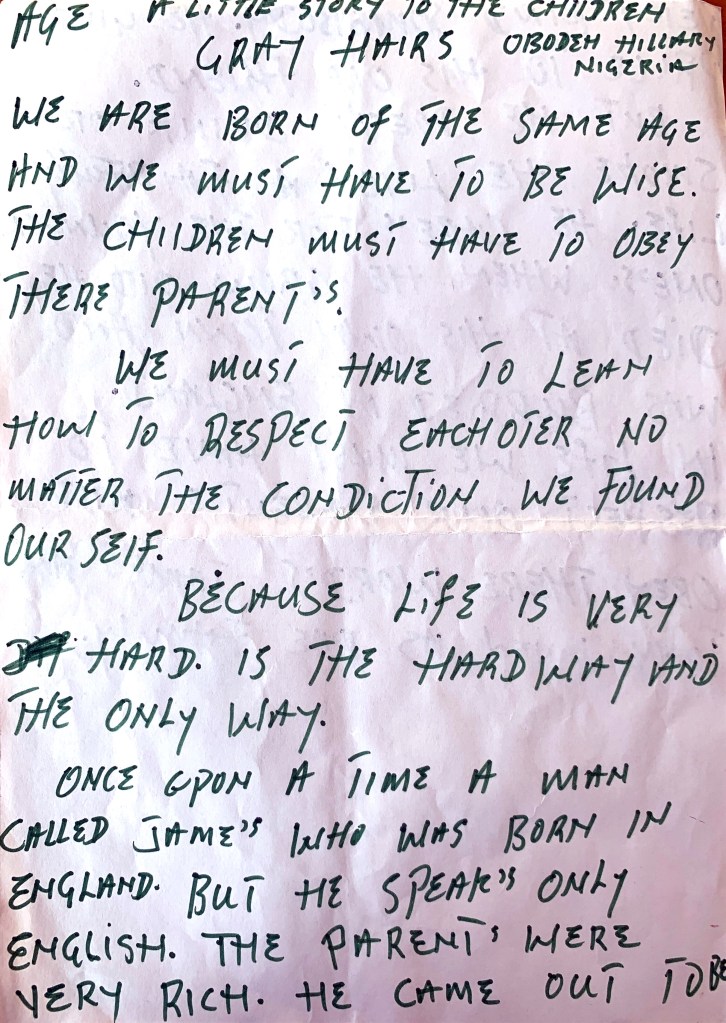 AGE A LITTLE STORY TO THE CHIIDREN
GRAY HAIRS OBODEH HILLARY
NIGERIA
WE ARE BORN OF THE SAME AGE
AND WE MUST HAVE TO BE WISE.
THE CHIIDREN MUST HAVE TO OBEY
THERE PARENT'S.
WE MUST HAVE TO LEAN
HOW TO RESPECT EACHOTER NO
MATTER THE CONDICTION WE FOUND
OUR SEIF.
BECAUSE LIFE IS VERY
HARD. IS THE HARD WAY AND
THE ONLY WAY.
ONCE UPON A TIME A MAN
CALLED JAME'S WHO WAS BORN IN
ENGLAND. BUT HE SPEAK'S ONLY
ENGLISH. THE PARENT'S WERE
VERY RICH. HE CAME OUT TO BE